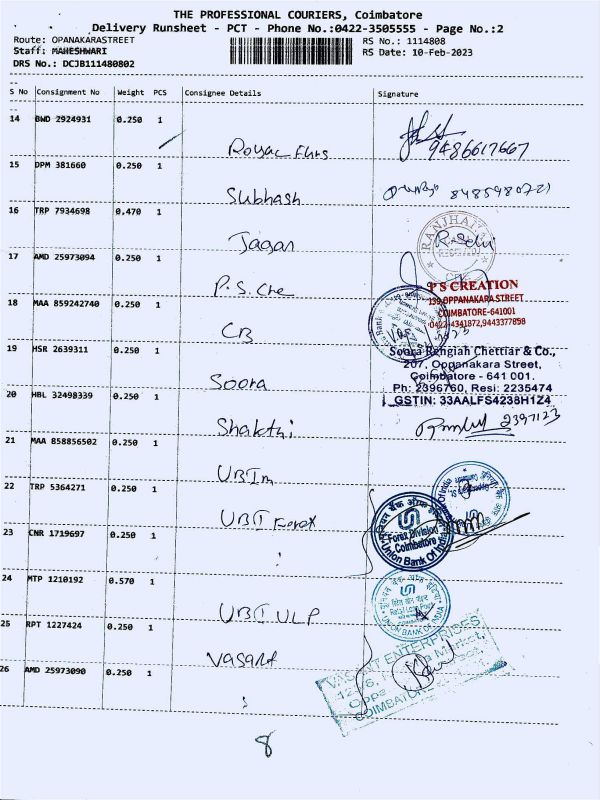 THE PROFESSIONAL COURIERS, Coimbatore
Delivery Runsheet - PCT - Phone No.:0422-3505555 - Page No.:2
Route: OPANAKARASTREET RS No.: 1114808
Staff: MAHESHWARI RS Date: 10-Feb-2023
DRS No.: DCJB111480802
S No Consignment No Weight PCS Consignee Details Signature
14 BWD 2924931 0.250 1
9486617667
15 DPM 381660 0.250 1
Subhash 8485980721
16 TRP 7934698 0.470 1
Jagan
RANJHANA
17 AMD 25973094 0.250 1
P.S. Che
P S CREATION
139, OPPANAKARA STREET
COIMBATORE-641001
0422-4341872,9443377858
18 MAA 859242740 0.250 1
CB
19 HSR 2639311 0.250 1
Soora
Soora Rengiah Chettiar & Co.,
207, Oppanakara Street,
Coimbatore - 641 001.
Ph: 2396760, Resi: 2235474
GSTIN: 33AALFS4238H1Z4
20 HBL 32498339 0.250 1
Shakthi 2397123
21 MAA 858856502 0.250 1
UBIm
22 TRP 5364271 0.250 1
UBI Forex
यूनियन बैंक ऑफ इंडिया
Forex Division
Coimbatore
Union Bank Of India
23 CNR 1719697 0.250 1
24 MTP 1210192 0.570 1
UBI ULP
UNION BANK OF INDIA
25 RPT 1227424 0.250 1
Vasant
VASANT ENTERPRISES
Market,
COIMBATORE
26 AMD 25973090 0.250 1
8